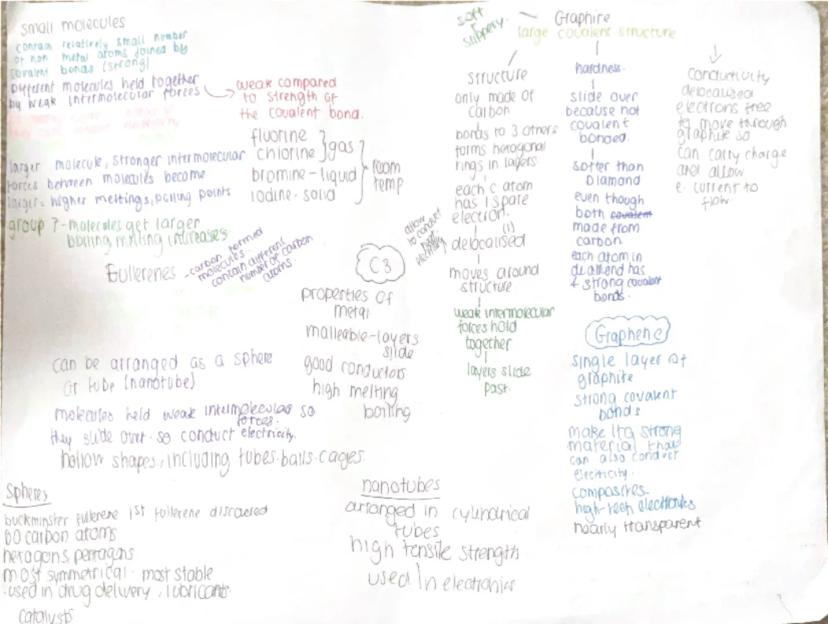 small molecules
contain relatively small number
of non metal atoms joined by
covalent bonds (strong)
Different molecules held together
by weak intermolecular forces
weak compared
to strength of
the covalent bond.
larger molecule, stronger intermolecular
forces between molecules become
larger, higher meltings, boiling points
fluorine
chlorine
gas
bromine - liquid
iodine - solid
room
temp
group 7 - molecules get larger
boiling melting increases
Fullerenes - carbon formed
molecules
contain different
number of carbon
atoms.
can be arranged as a sphere
or tube (nanotube)
molecules held weak intermolecular
forces. so
they slide over. so conduct electricity.
hollow shapes, including tubes. balls. cages
Spheres
buckminster fullerene 1st fullerene discovered
60 carbon atoms
hexagons, pentagons
most symmetrical. most stable
used in drug delivery, lubricants
catalysts
C3
properties of
metal
malleable - layers
slide
good conductors
high melting
boiling
nanotubes
arranged in cylindrical
tubes
high tensile strength
used in electronics
soft
slippery.
Graphite
large covalent structure
structure
only made of
carbon
bonds to 3 others
forms hexagonal
rings in layers
each c atom
has 1 spare
electron.
(1)
delocalised
allow
to conduct
electricity
moves around
structure
weak intermolecular
forces hold
together
layers slide
past.
hardness.
slide over
because not
covalent
bonded.
softer than
Diamond
even though
both covalent
made from
carbon
each atom in
diamond has
4 strong covalent
bonds.
conductivity
delocalised
electrons free
to move through
graphite so
can carry charge
and allow
e. current to
flow
Graphene
single layer of
graphite
strong covalent
bonds
make it a strong
material that
can also conduct
electricity.
composites.
high-tech electronics
nearly transparent